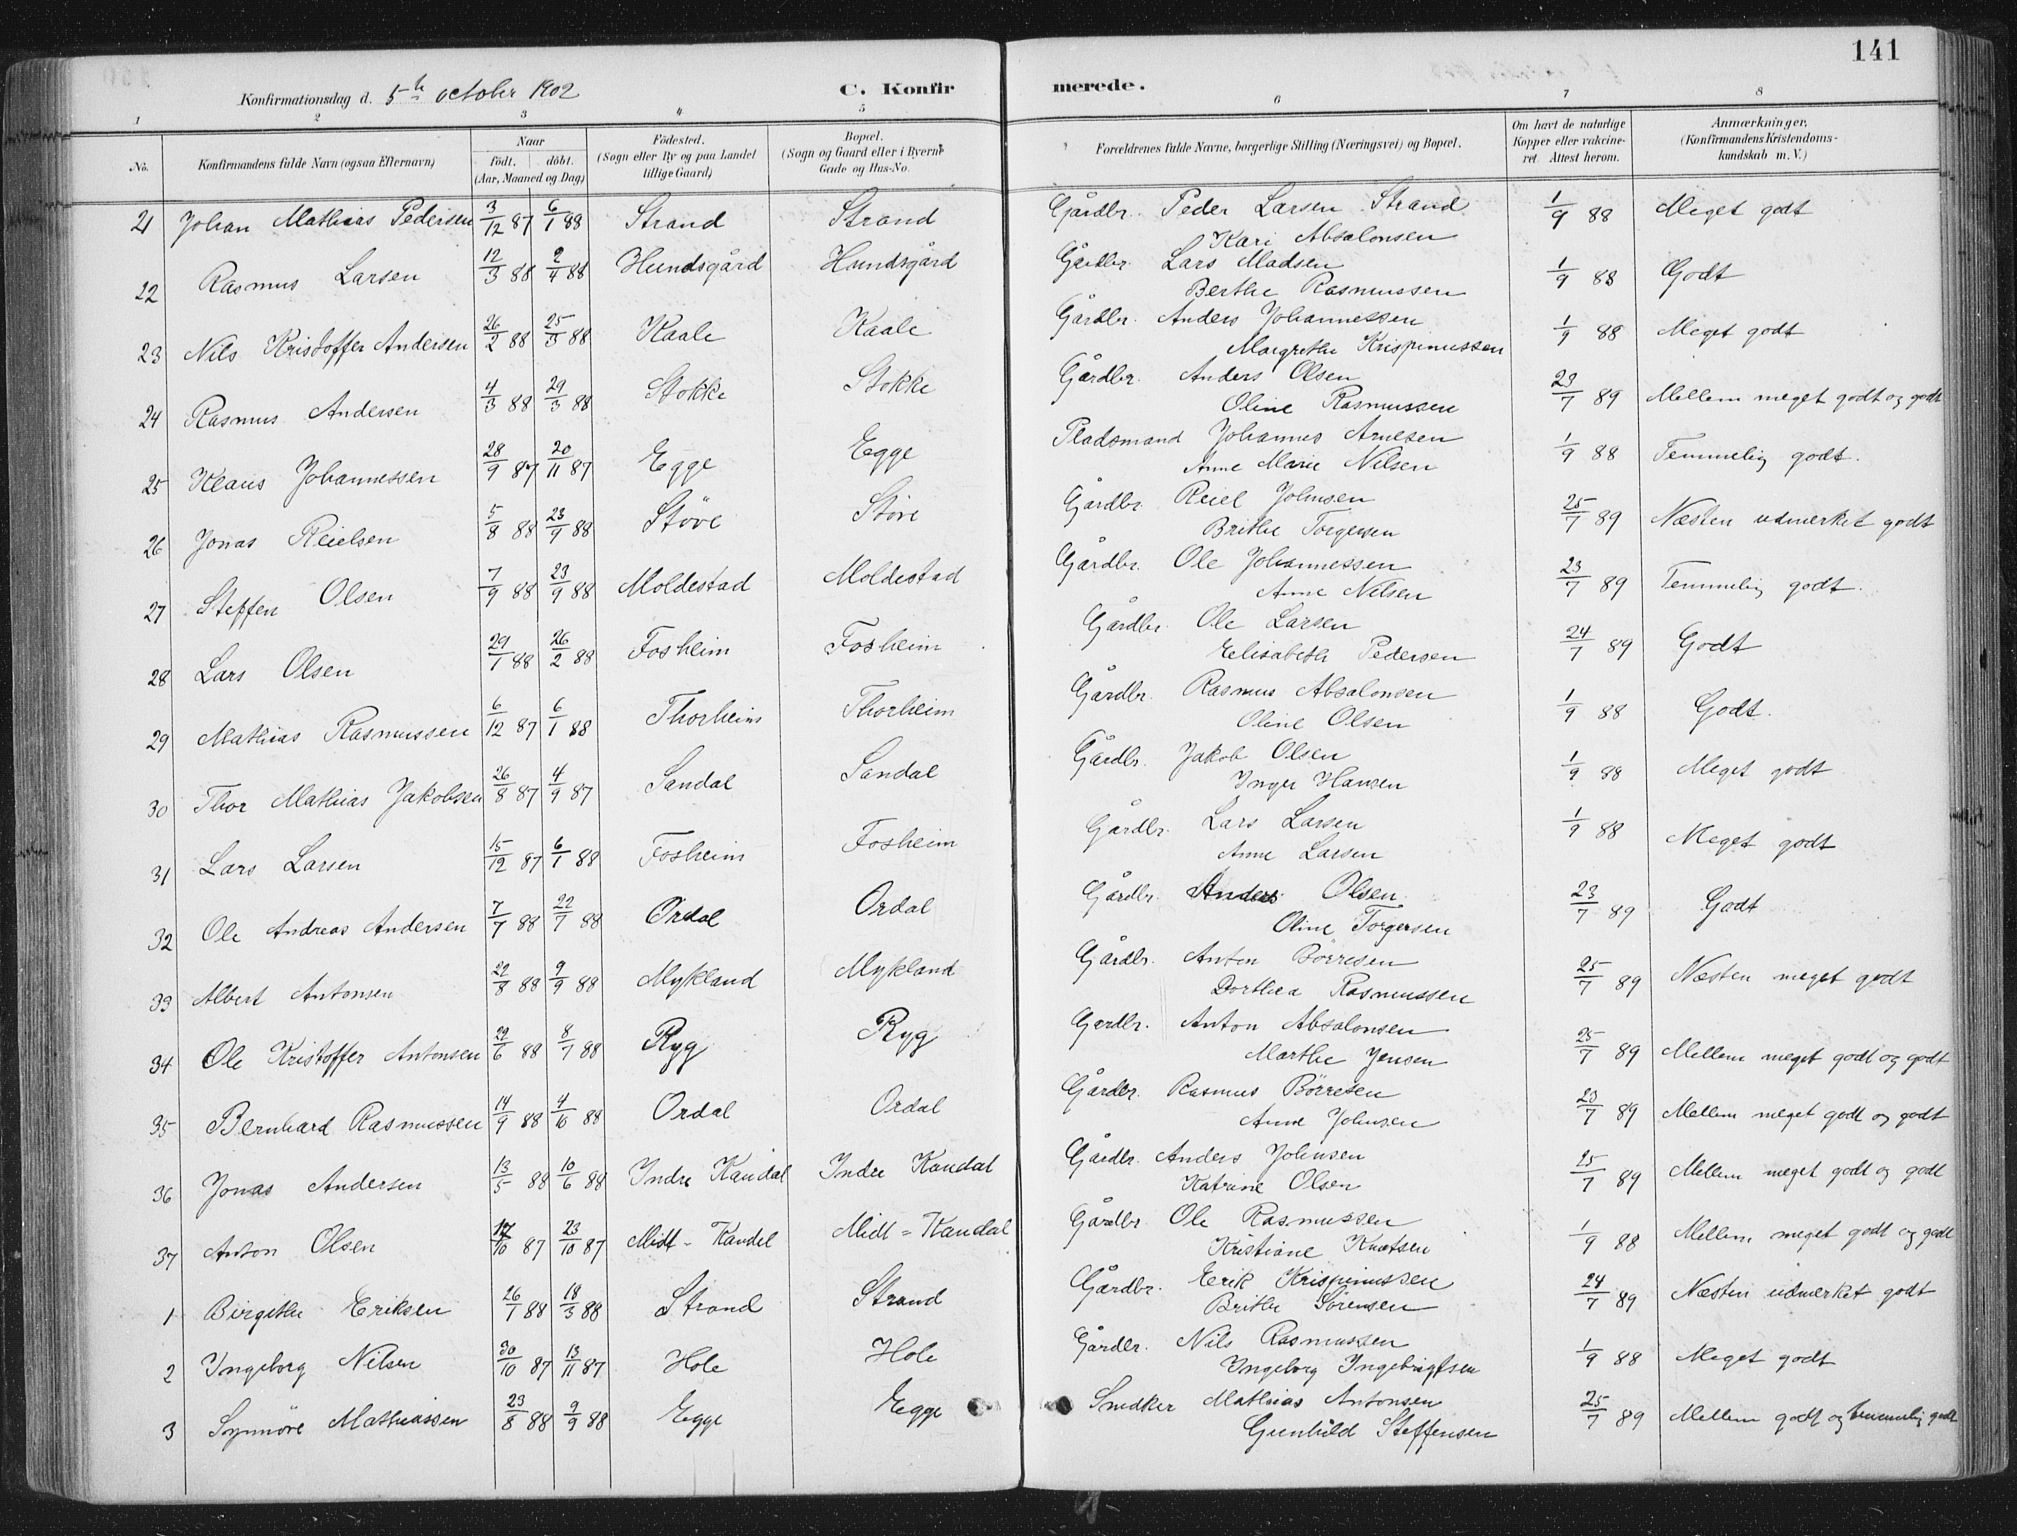 141
Konfirmationsdag d. 5te october 1902 C. Konfirmerede.
1 2 3 4 5 6 7 8
No. Konfirmandens fulde Navn (ogsaa Efternavn) Naar født. døbt. (Aar, Maaned og Dag) Fødested. (Sogn eller By og paa Landet tillige Gaard) Bopæl. (Sogn og Gaard eller i Byerne Gade og Hus-No. Forældrenes fulde Navne, borgerlige Stilling (Næringsvei) og Bopæl. Om havt de naturlige Kopper eller vakcineret. Attest herom. Anmærkninger. (Konfirmandens Kristendomskundskab m. V.)
21 Johan Mathias Pedersen 3/12 87 6/1 88 Strand Strand Gårdbr. Peder Larsen Strand 1/9 88 Meget godt
Kari Absalonsen
22 Rasmus Larsen 12/3 88 2/4 88 Hundsgård Hundsgård Gårdbr. Lars Madsen 1/9 88 Godt
Berthe Rasmussen
23 Nils Kristoffer Andersen 26/2 88 25/3 88 Kaale Kaale Gårdbr. Anders Johannessen 1/9 88 Meget godt
Margrethe Krispinussen
24 Rasmus Andersen 4/3 88 29/3 88 Stokke Stokke Gårdbr. Anders Olsen 23/7 89 Mellem meget godt og godt
Oline Rasmussen
25 Klaus Johannessen 28/9 87 20/11 87 Egge Egge Pladsmand Johannes Arnesen 1/9 88 Temmelig godt.
Anne Marie Nilsen
26 Jonas Reielsen 5/8 88 23/9 88 Støve Støve Gårdbr. Reiel Johnsen 25/7 89 Næsten udmerket godt
Brithe Torgersen
27 Steffen Olsen 7/9 88 23/9 88 Moldestad Moldestad Gårdbr. Ole Johannessen 23/7 89 Temmelig godt.
Anne Nilsen
28 Lars Olsen 29/1 88 26/2 88 Fosheim Fosheim Gårdbr. Ole Larsen 24/7 89 Godt
Elisabeth Pedersen
29 Mathias Rasmussen 6/12 87 6/1 88 Thorheim Thorheim Gårdbr. Rasmus Absalonsen 1/9 88 Godt.
Oline Olsen
30 Thor Mathias Jakobsen 26/8 87 4/9 87 Sandal Sandal Gårdbr. Jakob Olsen 1/9 88 Meget godt
Inger Hansen
31 Lars Larsen 15/12 87 6/1 88 Fosheim Fosheim Gårdbr. Lars Larsen 1/9 88 Meget godt
Anne Larsen
32 Ole Andreas Andersen 7/7 88 22/7 88 Ordal Ordal Gårdbr. Anders Olsen 23/7 89 Godt
Oline Torgersen
33 Albert Antonsen 22/8 88 9/9 88 Mykland Mykland Gårdbr. Anton Børresen 25/7 89 Næsten meget godt
Dorthea Rasmussen
34 Ole Kristoffer Antonsen 22/6 88 8/7 88 Ryg Ryg Gårdbr. Anton Absalonsen 25/7 89 Mellem meget godt og godt
Marthe Jensen
35 Bernhard Rasmussen 14/9 88 4/10 88 Ordal Ordal Gårdbr. Rasmus Børresen 23/7 89 Mellem meget godt og godt
Anne Johnsen
36 Jonas Andersen 13/5 88 10/6 88 Indre Kandal Indre Kandal Gårdbr. Anders Johnsen 25/7 89 Mellem meget godt og godt
Katrine Olsen
37 Anton Olsen /10 87 23/10 87 Midt-Kandal Midt=Kandal Gårdbr. Ole Rasmussen 1/9 88 Mellem meget godt og godt
Kristiane Knutsen
1 Birgithe Eriksen 26/1 88 18/3 88 Strand Strand Gårdbr. Erik Krispinussen 24/7 89 Næsten udmerket godt
Brithe Sørensen
2 Ingeborg Nilsen 30/10 87 13/11 87 Hole Hole Gårdbr. Nils Rasmussen 1/9 88 Meget godt
Ingeborg Ingebrigtsen
3 Synnøve Mathiassen 23/8 88 9/9 88 Egge Egge Snedker Mathias Antonsen 25/7 89 Mellem godt og temmelig godt
Gunhild Steffensen